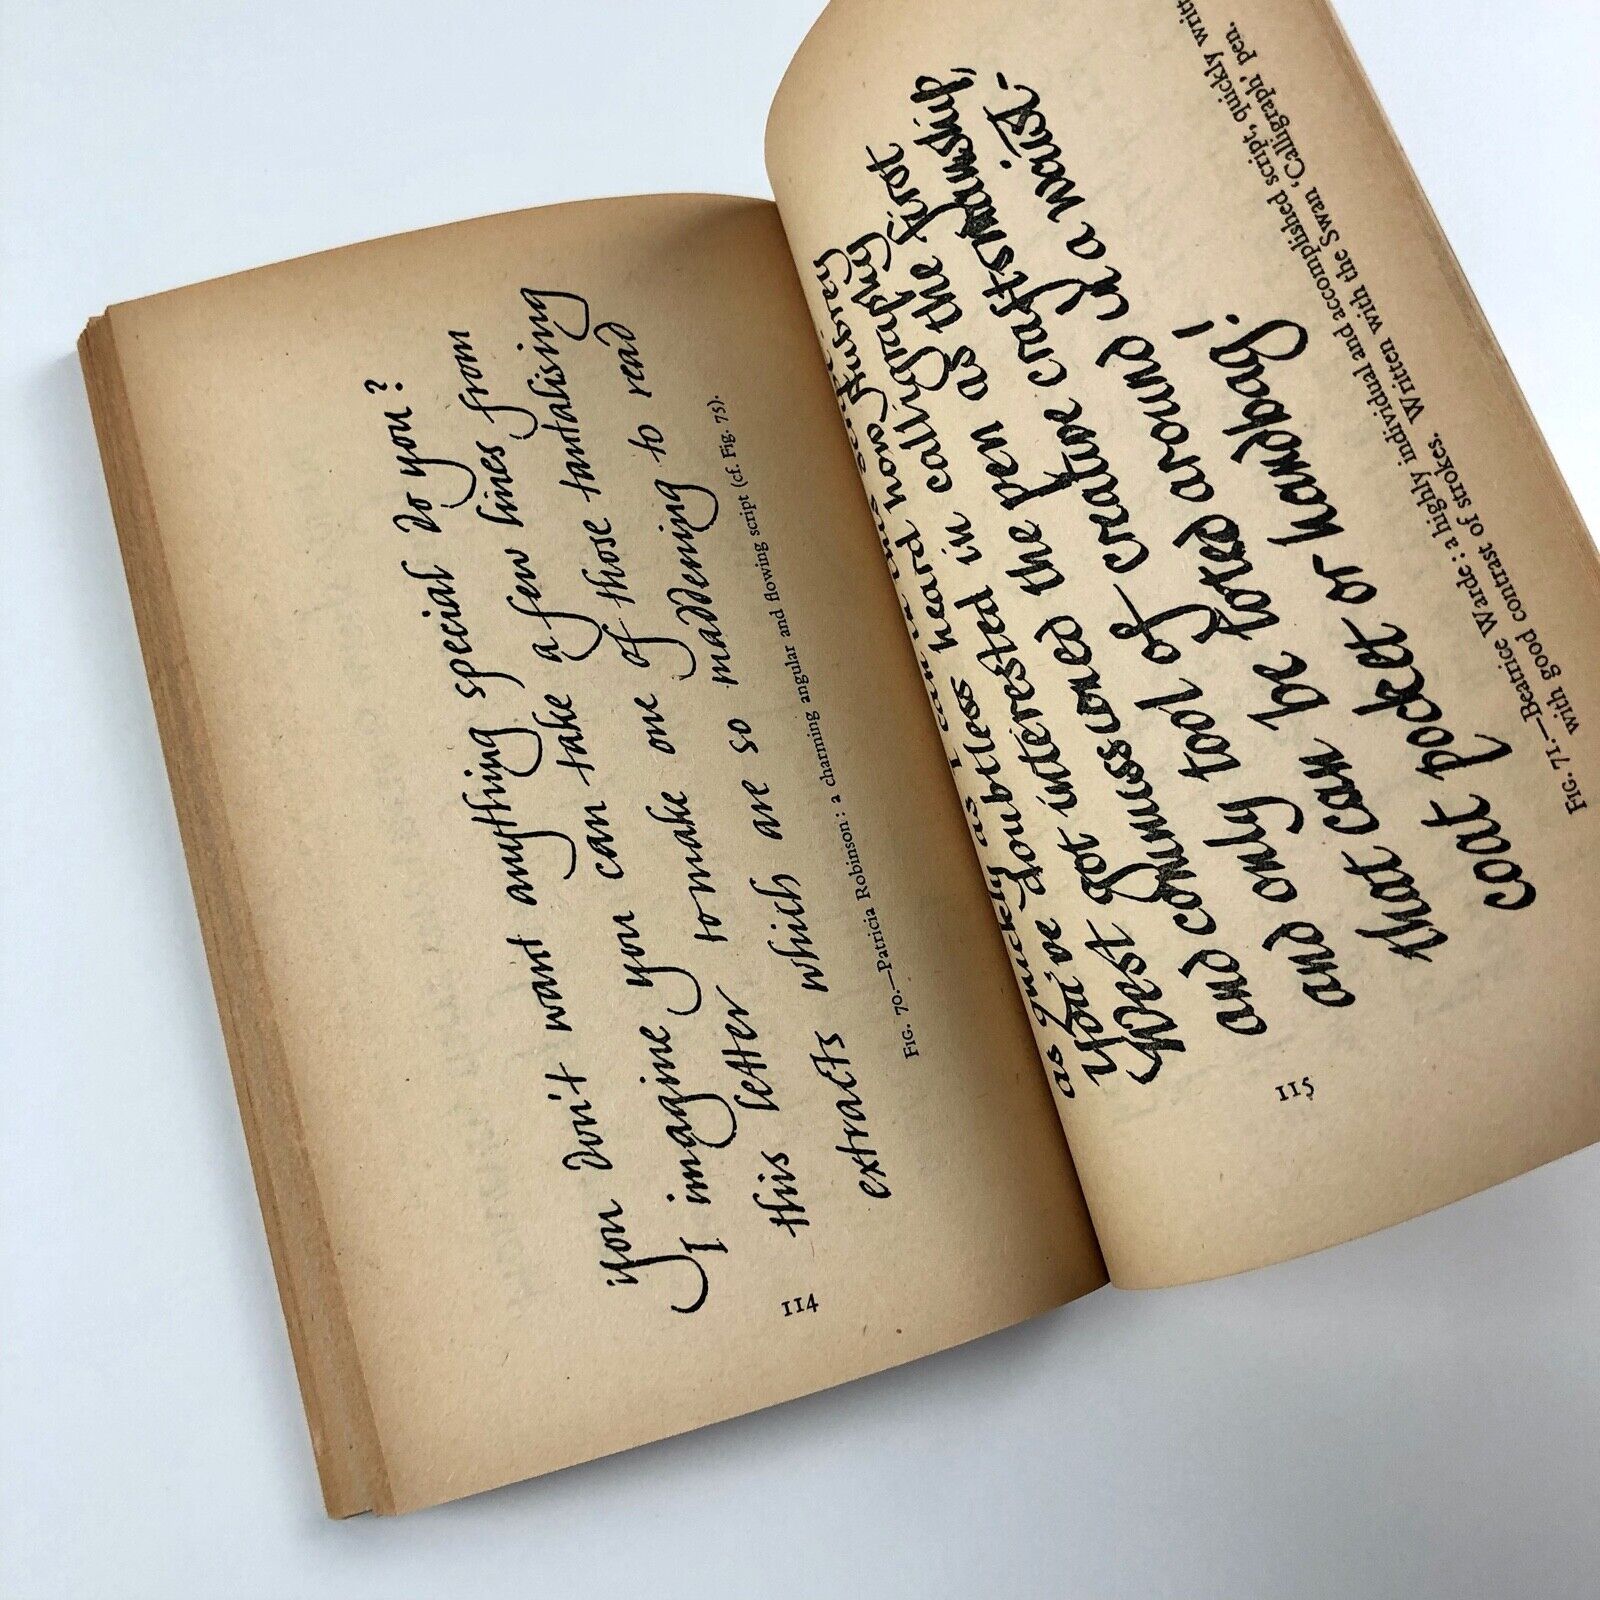 you don't want anything special do you?
I imagine you can take a few lines from
this letter to make one of those tantalising
extracts which are so maddening to read
FIG. 70.—Patricia Robinson: a charming angular and flowing script (cf. Fig. 75).
114
as quickly as I can in this script.
You've doubtless heard how Aubrey
West got interested in calligraphy
and the pen as the first
and only tool of creative craftsmanship,
that can be toted around in a waist-
coat pocket or handbag!
FIG. 71.—Beatrice Warde: a highly individual and accomplished script, quickly writt
with good contrast of strokes. Written with the Swan 'Calligraph' pen.
115